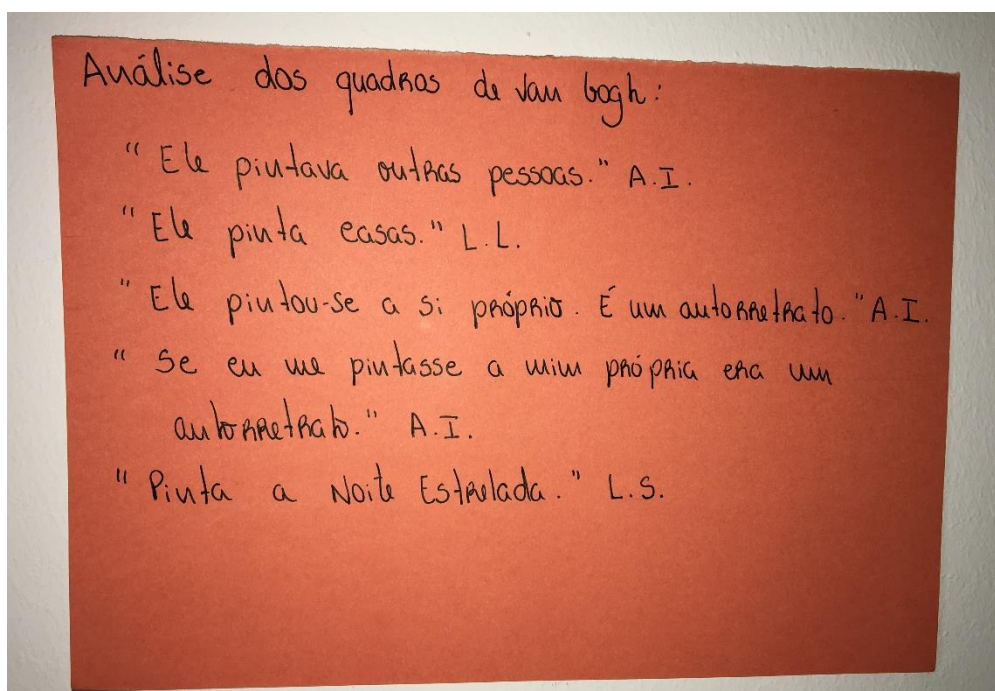 Análise dos quadros de Van Gogh:
"Ele pintava outras pessoas." A.I.
"Ele pinta casas." L.L.
"Ele pintou-se a si próprio. É um autorretrato." A.I.
"Se eu me pintasse a mim própria era um
autorretrato." A.I.
"Pinta a Noite Estrelada." L.S.